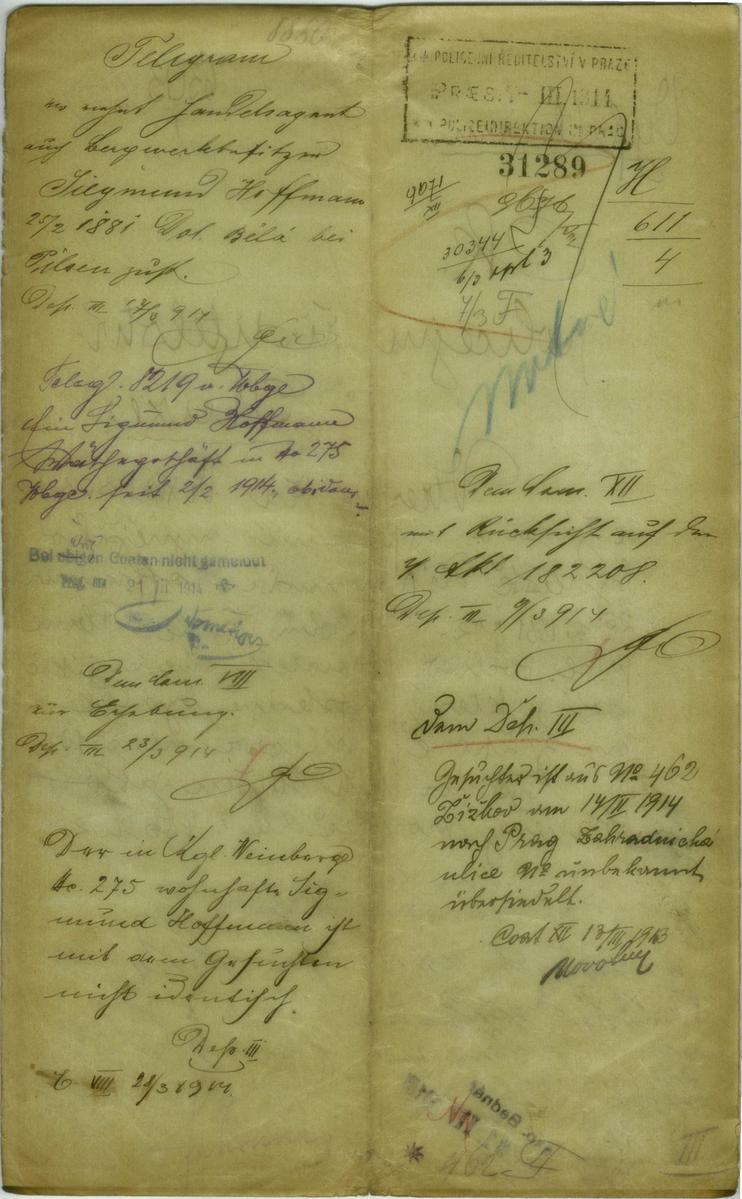 Telegram
wo wohnt Handelsagent
auch Bergwerksbesitzer
Siegmund Hoffmann
25/2 1881 Dol. Bělá bei
Pilsen zust.
Dep. III 17/3 914
Telegf. 8219 v. Wbge
Ein Sigmund Hoffmann
Wäschegeschäft in No 275
Wbge. seit 2/2 1914
Bei obigen Coaten nicht gemeldet
Prag, III 21 III 1914
Dem Com. VIII
zur Erhebung.
Dep. III 23/3 914
Der in Kgl. Weinberge
No. 275 wohnhafte Sig-
mund Hoffmann ist
mit dem Gesuchten
nicht identisch.
Dep. III
C VIII 28/3 1914.
POLICEJNÍ ŘEDITELSTVÍ V PRAZE
PRÆS. III. 1914
POLICEIDIREKTION IN PRAG
31289
H
611
4
30344
6/3
7/3 F
Dem Com. XII
mit Rücksicht auf den
Akt 182208.
Dep. III 9/3 914
Dem Dep. III
Gesuchter ist aus No 462
Žižkov am 14/II 1914
nach Prag Zahradnická
ulice No unbekannt
übersiedelt.
Coat XII 13/III 1913
Novotný
462
III